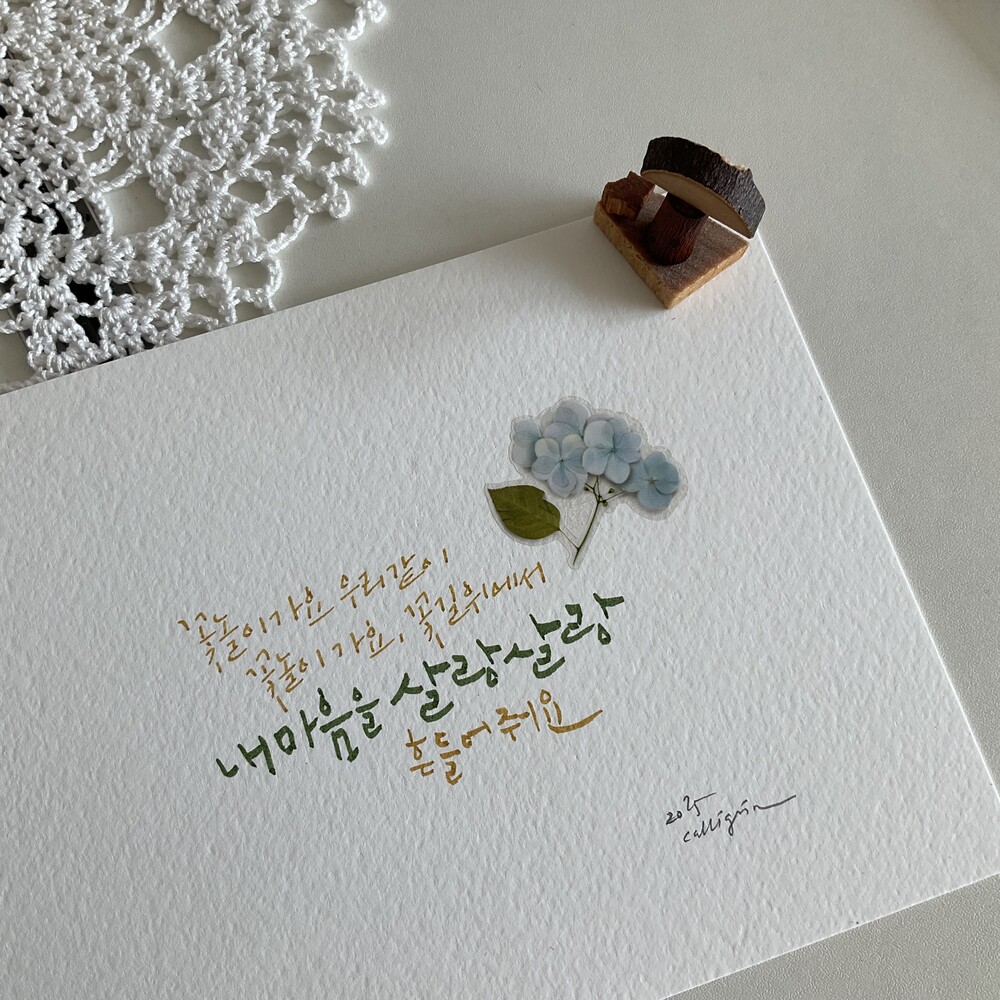 꽃놀이가요 우리같이
꽃놀이가요, 꽃길위에서
내마음을 살랑살랑
흔들어줘요
2025
calligrin